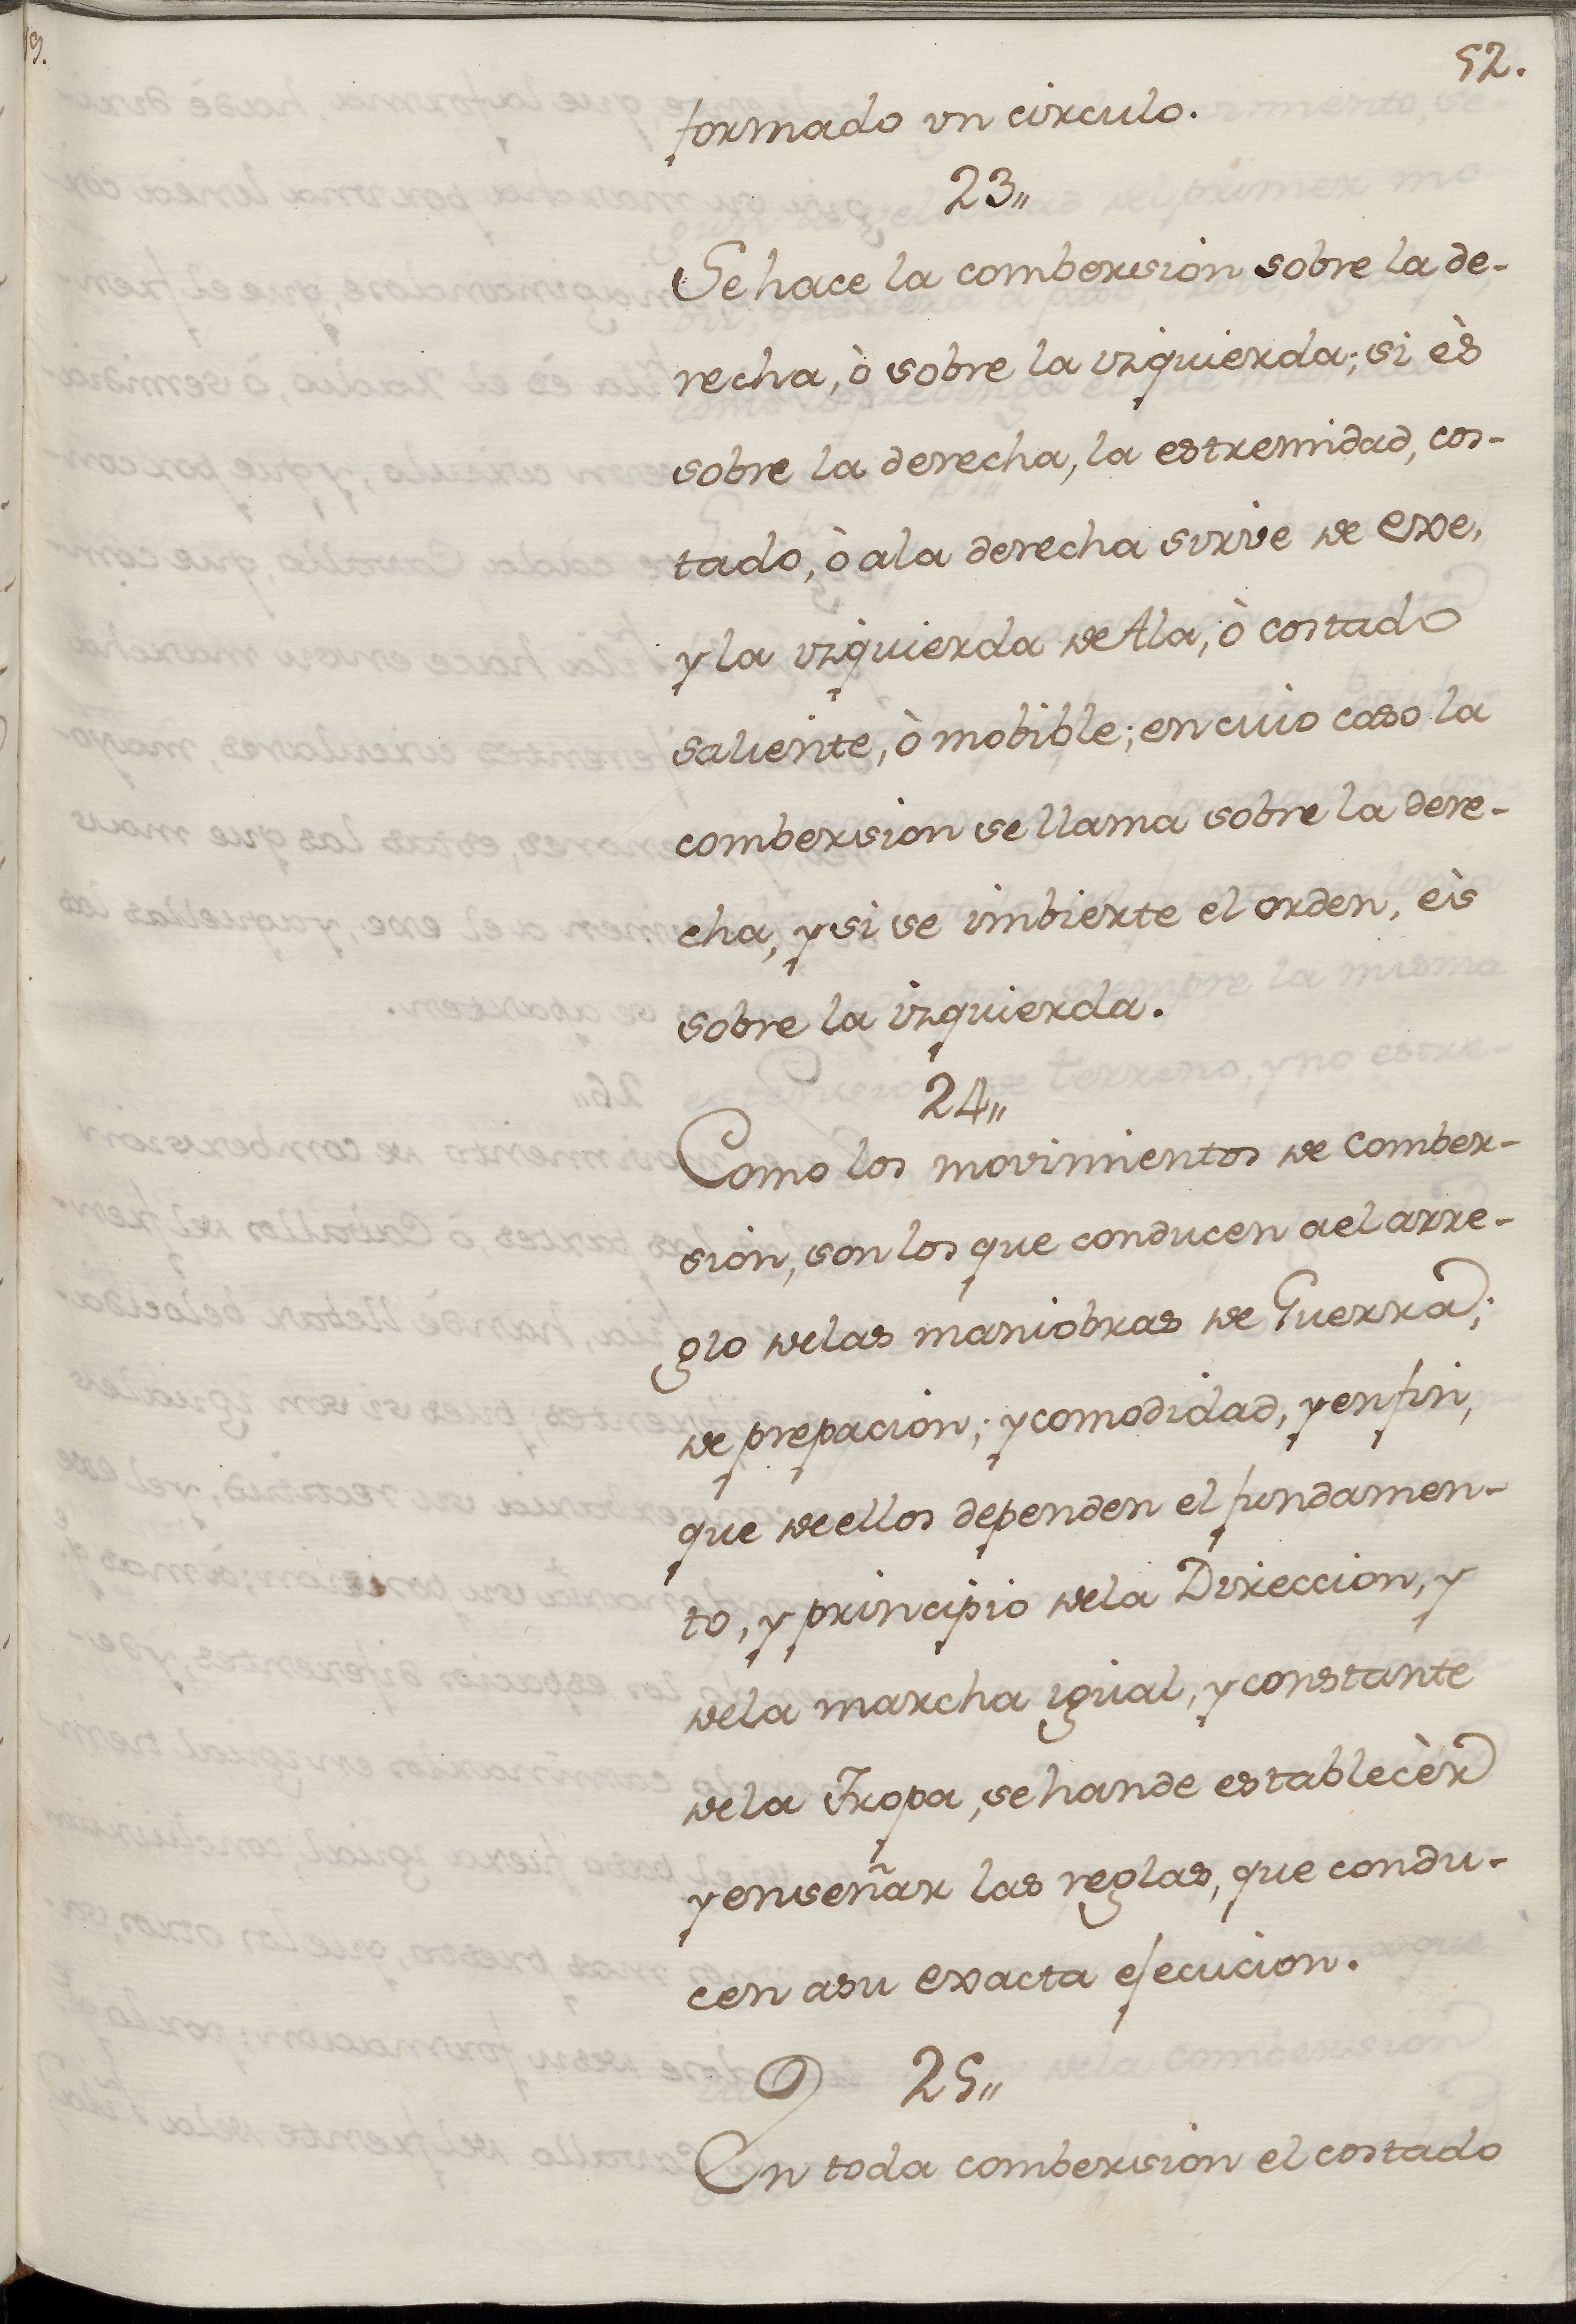 52.
formado un circulo.
23,,
Se hace la combersion sobre la de-
recha, ò sobre la izquierda; si ès
sobre la derecha, la estremidad, cos-
tado, ò ala derecha sirive de exe,
y la izquierda de Ala, ò costado
saliente, ò mobible; en cuio caso la
combersion se llama sobre la dere-
cha, y si se imbierte el orden, ès
sobre la izquierda.
24,,
Como los movimientos de comber-
sion, son los que conducen a el arre-
glo de las maniobras de Guerra;
de prepacion; y comodidad, y en fin,
que de ellos dependen el fundamen-
to, y principio de la Direccion, y
de la marcha igual, y constante
de la Tropa, se han de establecèr
y enseñar las reglas, que condu-
cen a su exacta ejecucion.
25,,
En toda combersion el costado